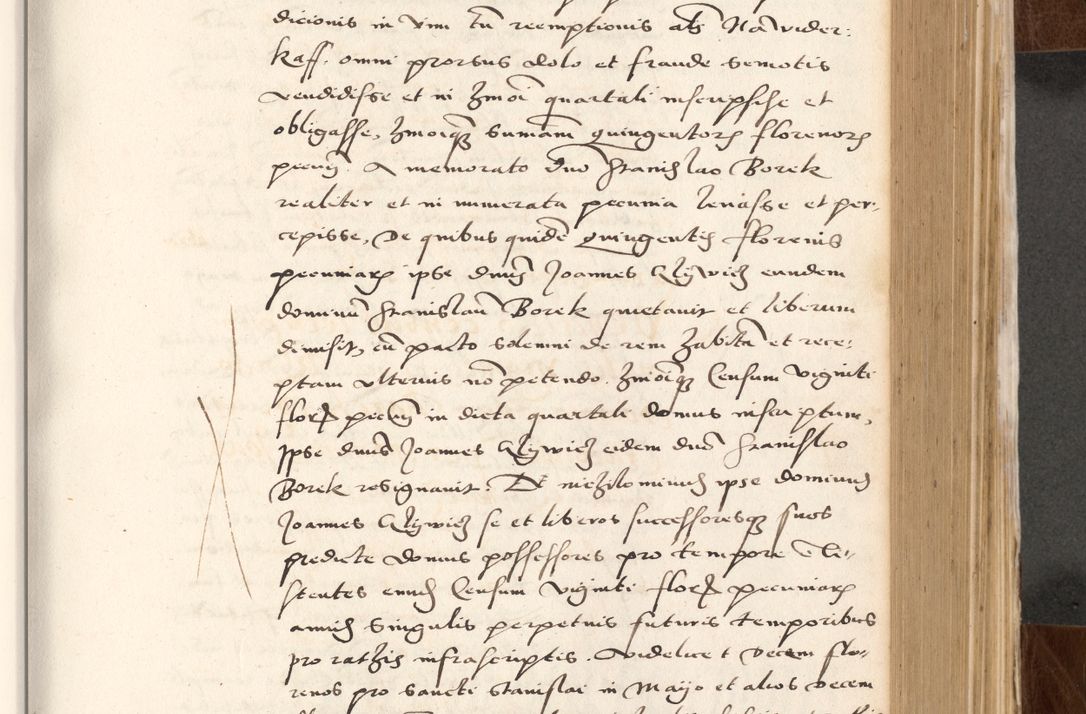 dicionis in vim tn̄ reemptionis als Na wider:
kaff. omni prorsus dolo et fraude semotis
vendidisse et in hmoi quartali inscripsisse et
obligasse, hmoiq̄ȝ sumam̄ quingentorꝝ florenorꝝ
pecun̄. A memorato dno Stanislao Borek
realiter et in numerata pecunia leuasse et per:
cepisse, De quibus quidē quingentis florenis
pecuniarꝝ ipse dnus Joannes Glywicz eundem
dominū Stanislaū Borek quietauit et liberum
dimisit, cū pacto solemni de rem habita et rece:
ptam vlterius no petendo. hmoiq̄ȝ Censum viginti
florꝝ pecun̄ in dicta quartali domus inscriptum,
Ipse dnus Joannes Glywicz eidem dno Stanislao
Borek resignauit. Et nichilominus ipse dominus
Joannes Glywicz se et liberos successoresqȝ suos
predicte domus possessores pro tempore exi:
stentes eundē Censum viginti florꝝ pecuniarꝝ
annis singulis perpetuis futuris temporibus
pro rathis infrascriptis. videlicet decem flo:
renos pro sancti Stanislai in Mayo et alios decem